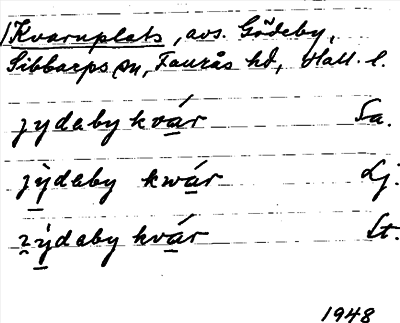 Kvarnplats, avs. Gödeby,
Sibbarps sn, Faurås hd, Hall. l.
jydaby kvár Sa.
jýdaby kwár Lj.
ýdaby kvár St.
1948